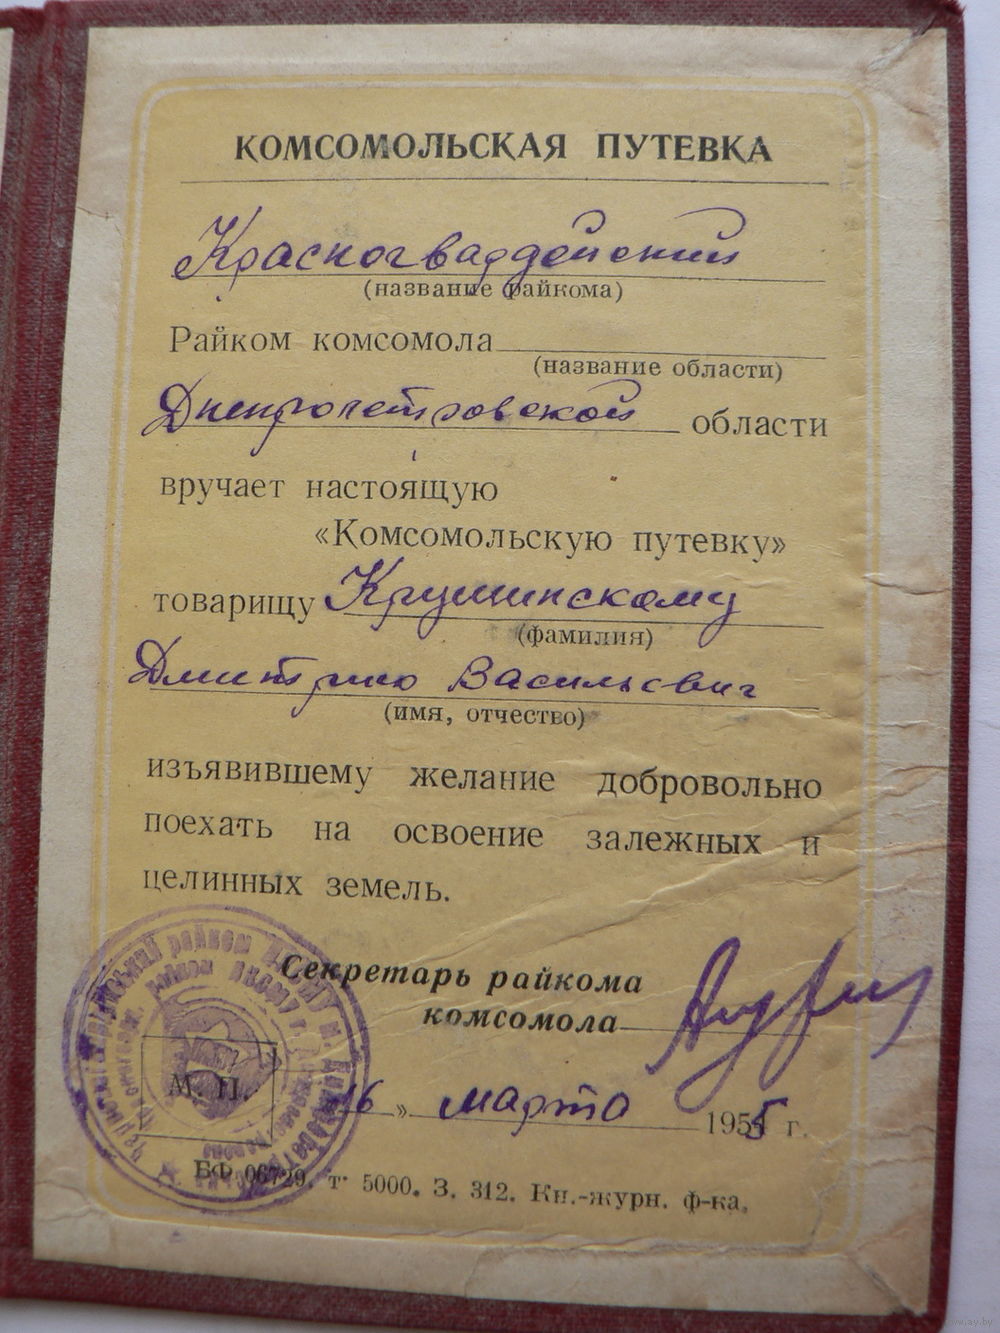 КОМСОМОЛЬСКАЯ ПУТЕВКА
Красногвардейский
(название райкома)
Райком комсомола
(название области)
Днепропетровской области
вручает настоящую
«Комсомольскую путевку»
товарищу Крушинскому
(фамилия)
Дмитрию Васильевич
(имя, отчество)
изъявившему желание добровольно
поехать на освоение залежных и
целинных земель.
Секретарь райкома
комсомола
М. П.
16 » марта 1955 г.
БФ 06729. т· 5000. З. 312. Кн.-журн. ф-ка.
www.ay.by